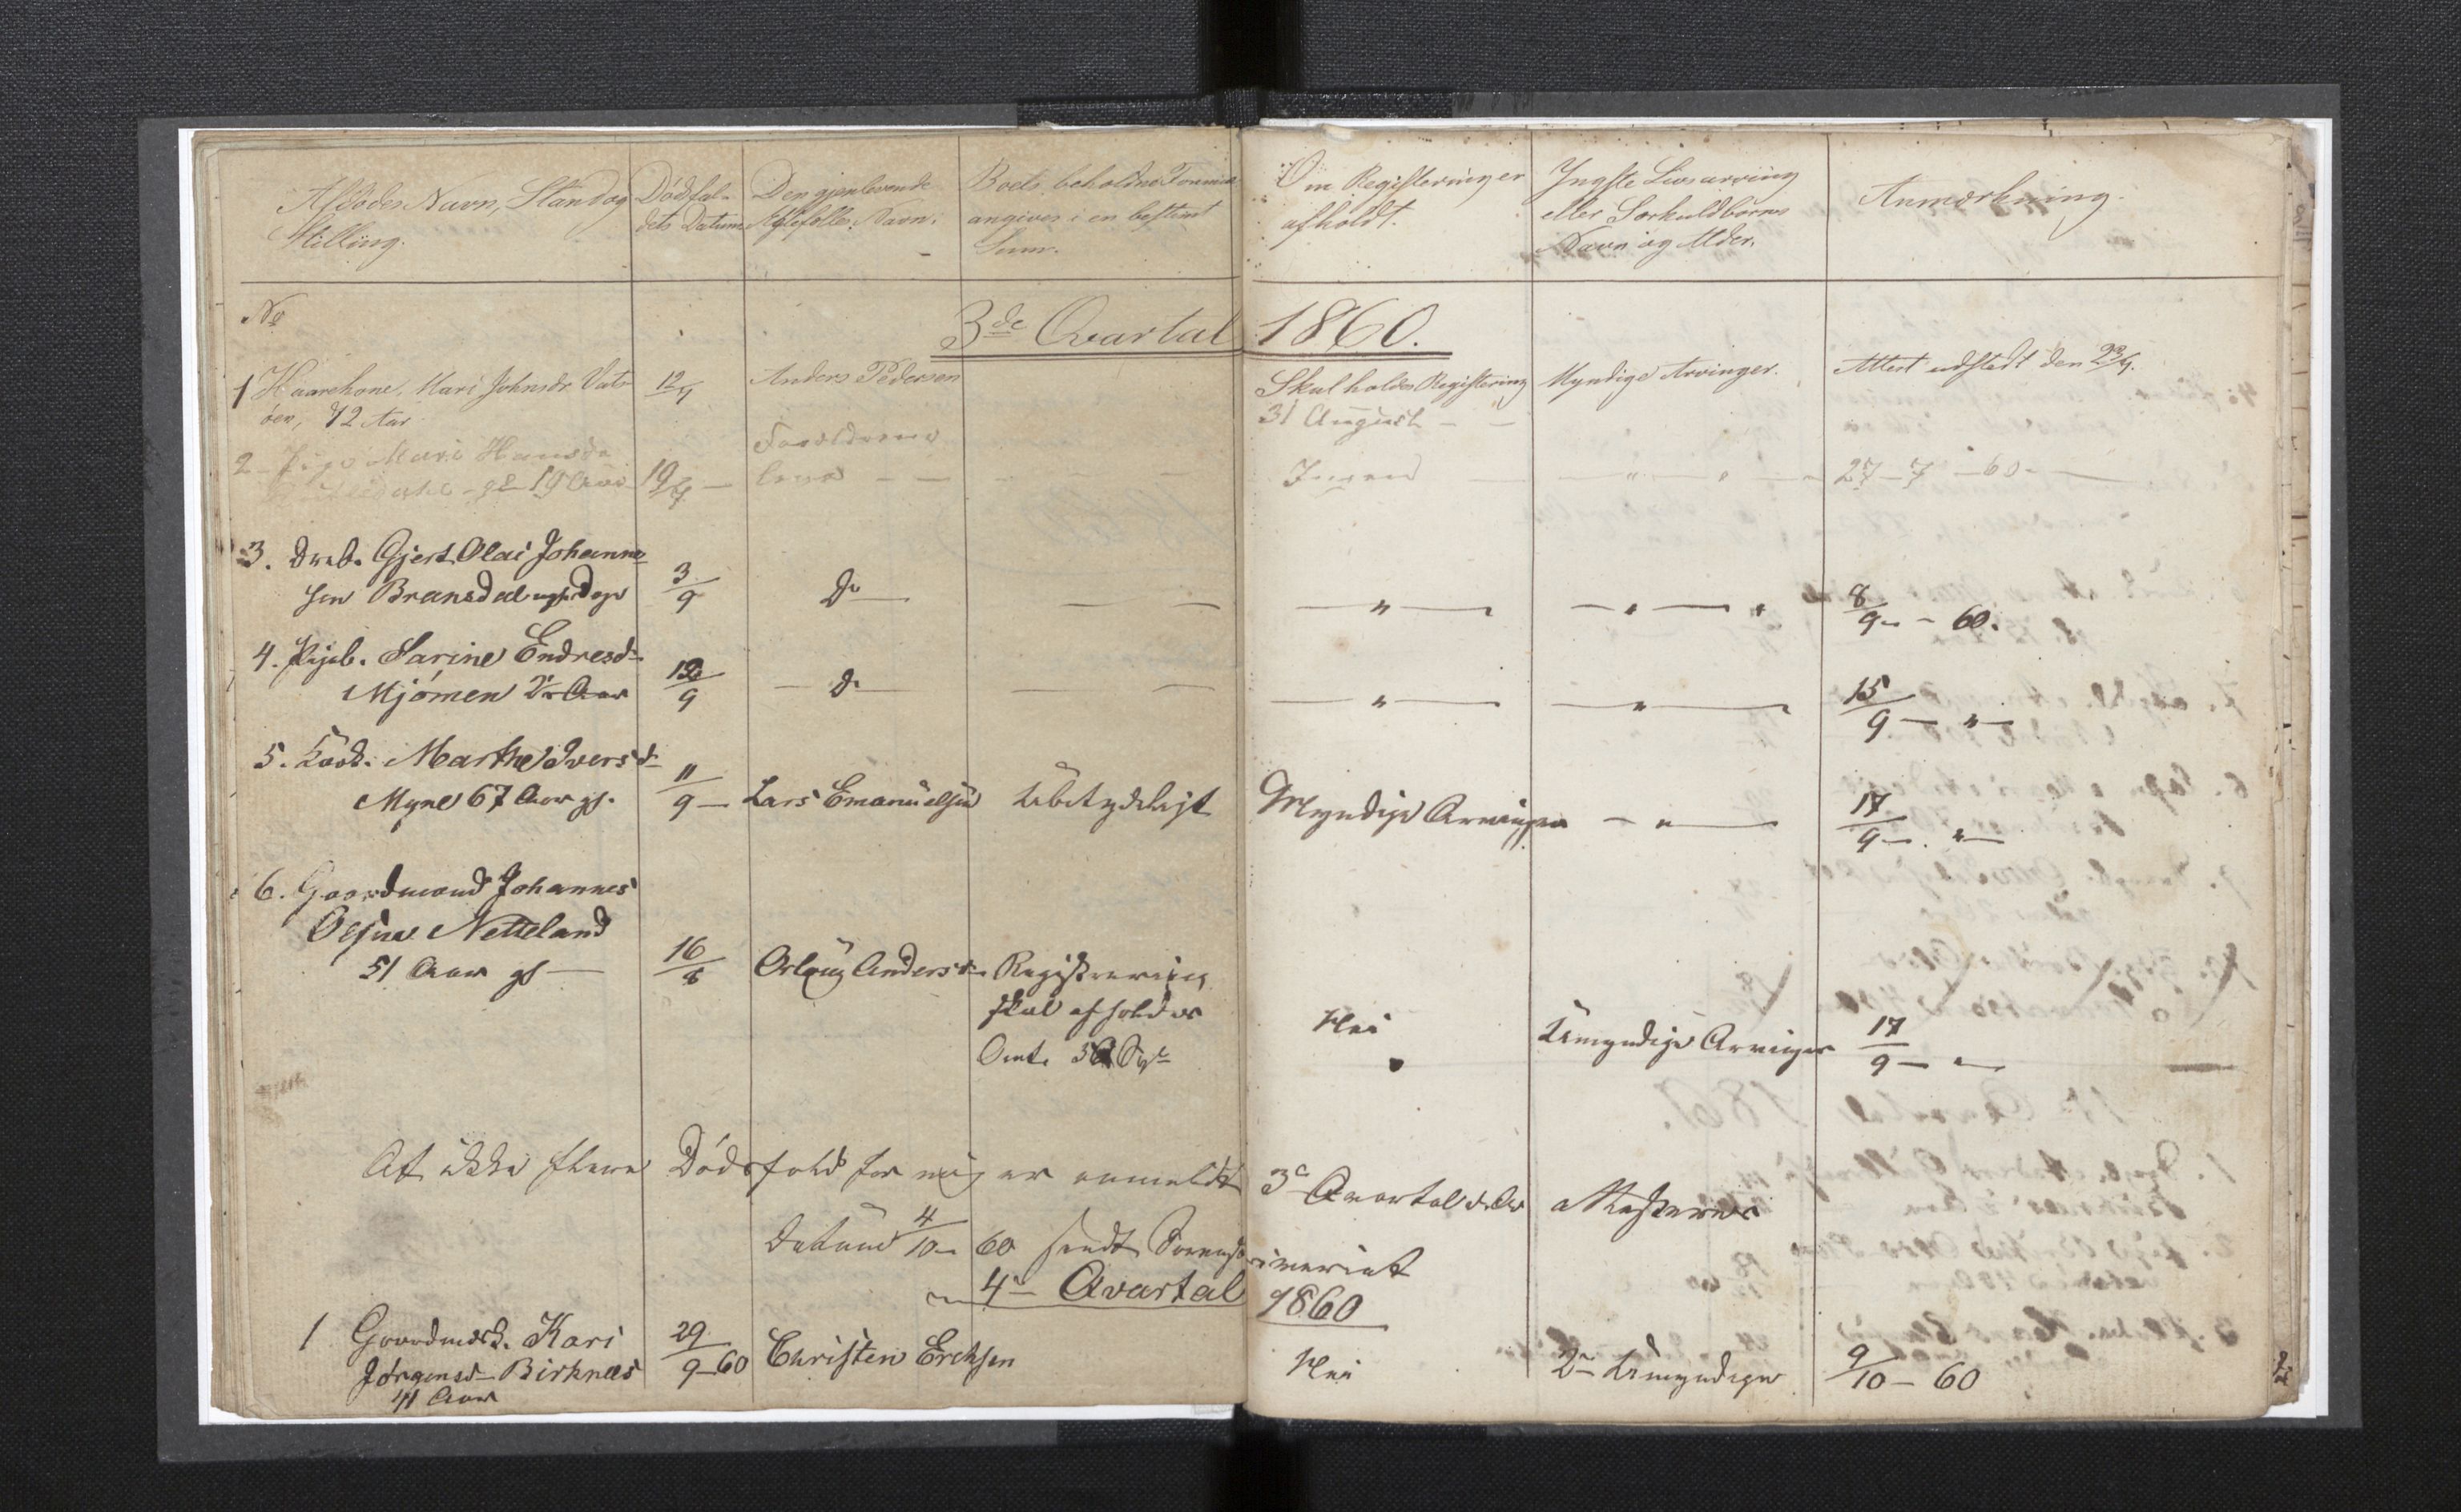 Afdödes Navn, Stand og
Stilling.
Dödsfal-
dets Datum
Den gjenlevende
Ægtefælles Navn.
Boets beholdne Formue
angives i en bestemt
Sum.
Om Registeringer
afholdt.
Yngste Livsarving
eller Særkuldbarns
Navn og Alder.
Anmærkning.
No
3de Qvartal 1860.
1 Kaarekone, Mari Johnsdr Vats
öen, 72 Aar
Anders Pedersen
Skal holdes Registering
31 August
Myndige Arvinger.
Attest udstedt den
2 Pige Mari Hansdr
19 Aar
19/7
Forældrene
leve
Ingen
27-7-60
3. Dreb. Gjert Olai Johanne-
sen Bransdal Dage
3/9
Do
8/9 - 60.
4. Pigeb. Sarine Endresdr
Mjömen Aar
Do
15/9
5. Marthe Iversdr
Myne 67 Aar gl.
11/9
Lars Emanuelsen
Ubetydeligt
Myndige Arvinger
17/9
6. Gaardmand Johannes
Olsen Netteland
51 Aar gl
16/8
Anders
Registrering
skal afholdes
Nei
Umyndige Arvinger
17/9
At ikke flere Dödsfald for mig er anmeldt 3de Qvartal
Datum 4/10 60 sendt
4de Qvartal 1860
1 Gaardmdsk. Kari
Jörgensdr Birknæs
41 Aar
29/9 60
Christen Ericksen
Nei
2de Umyndige
9/10 - 60